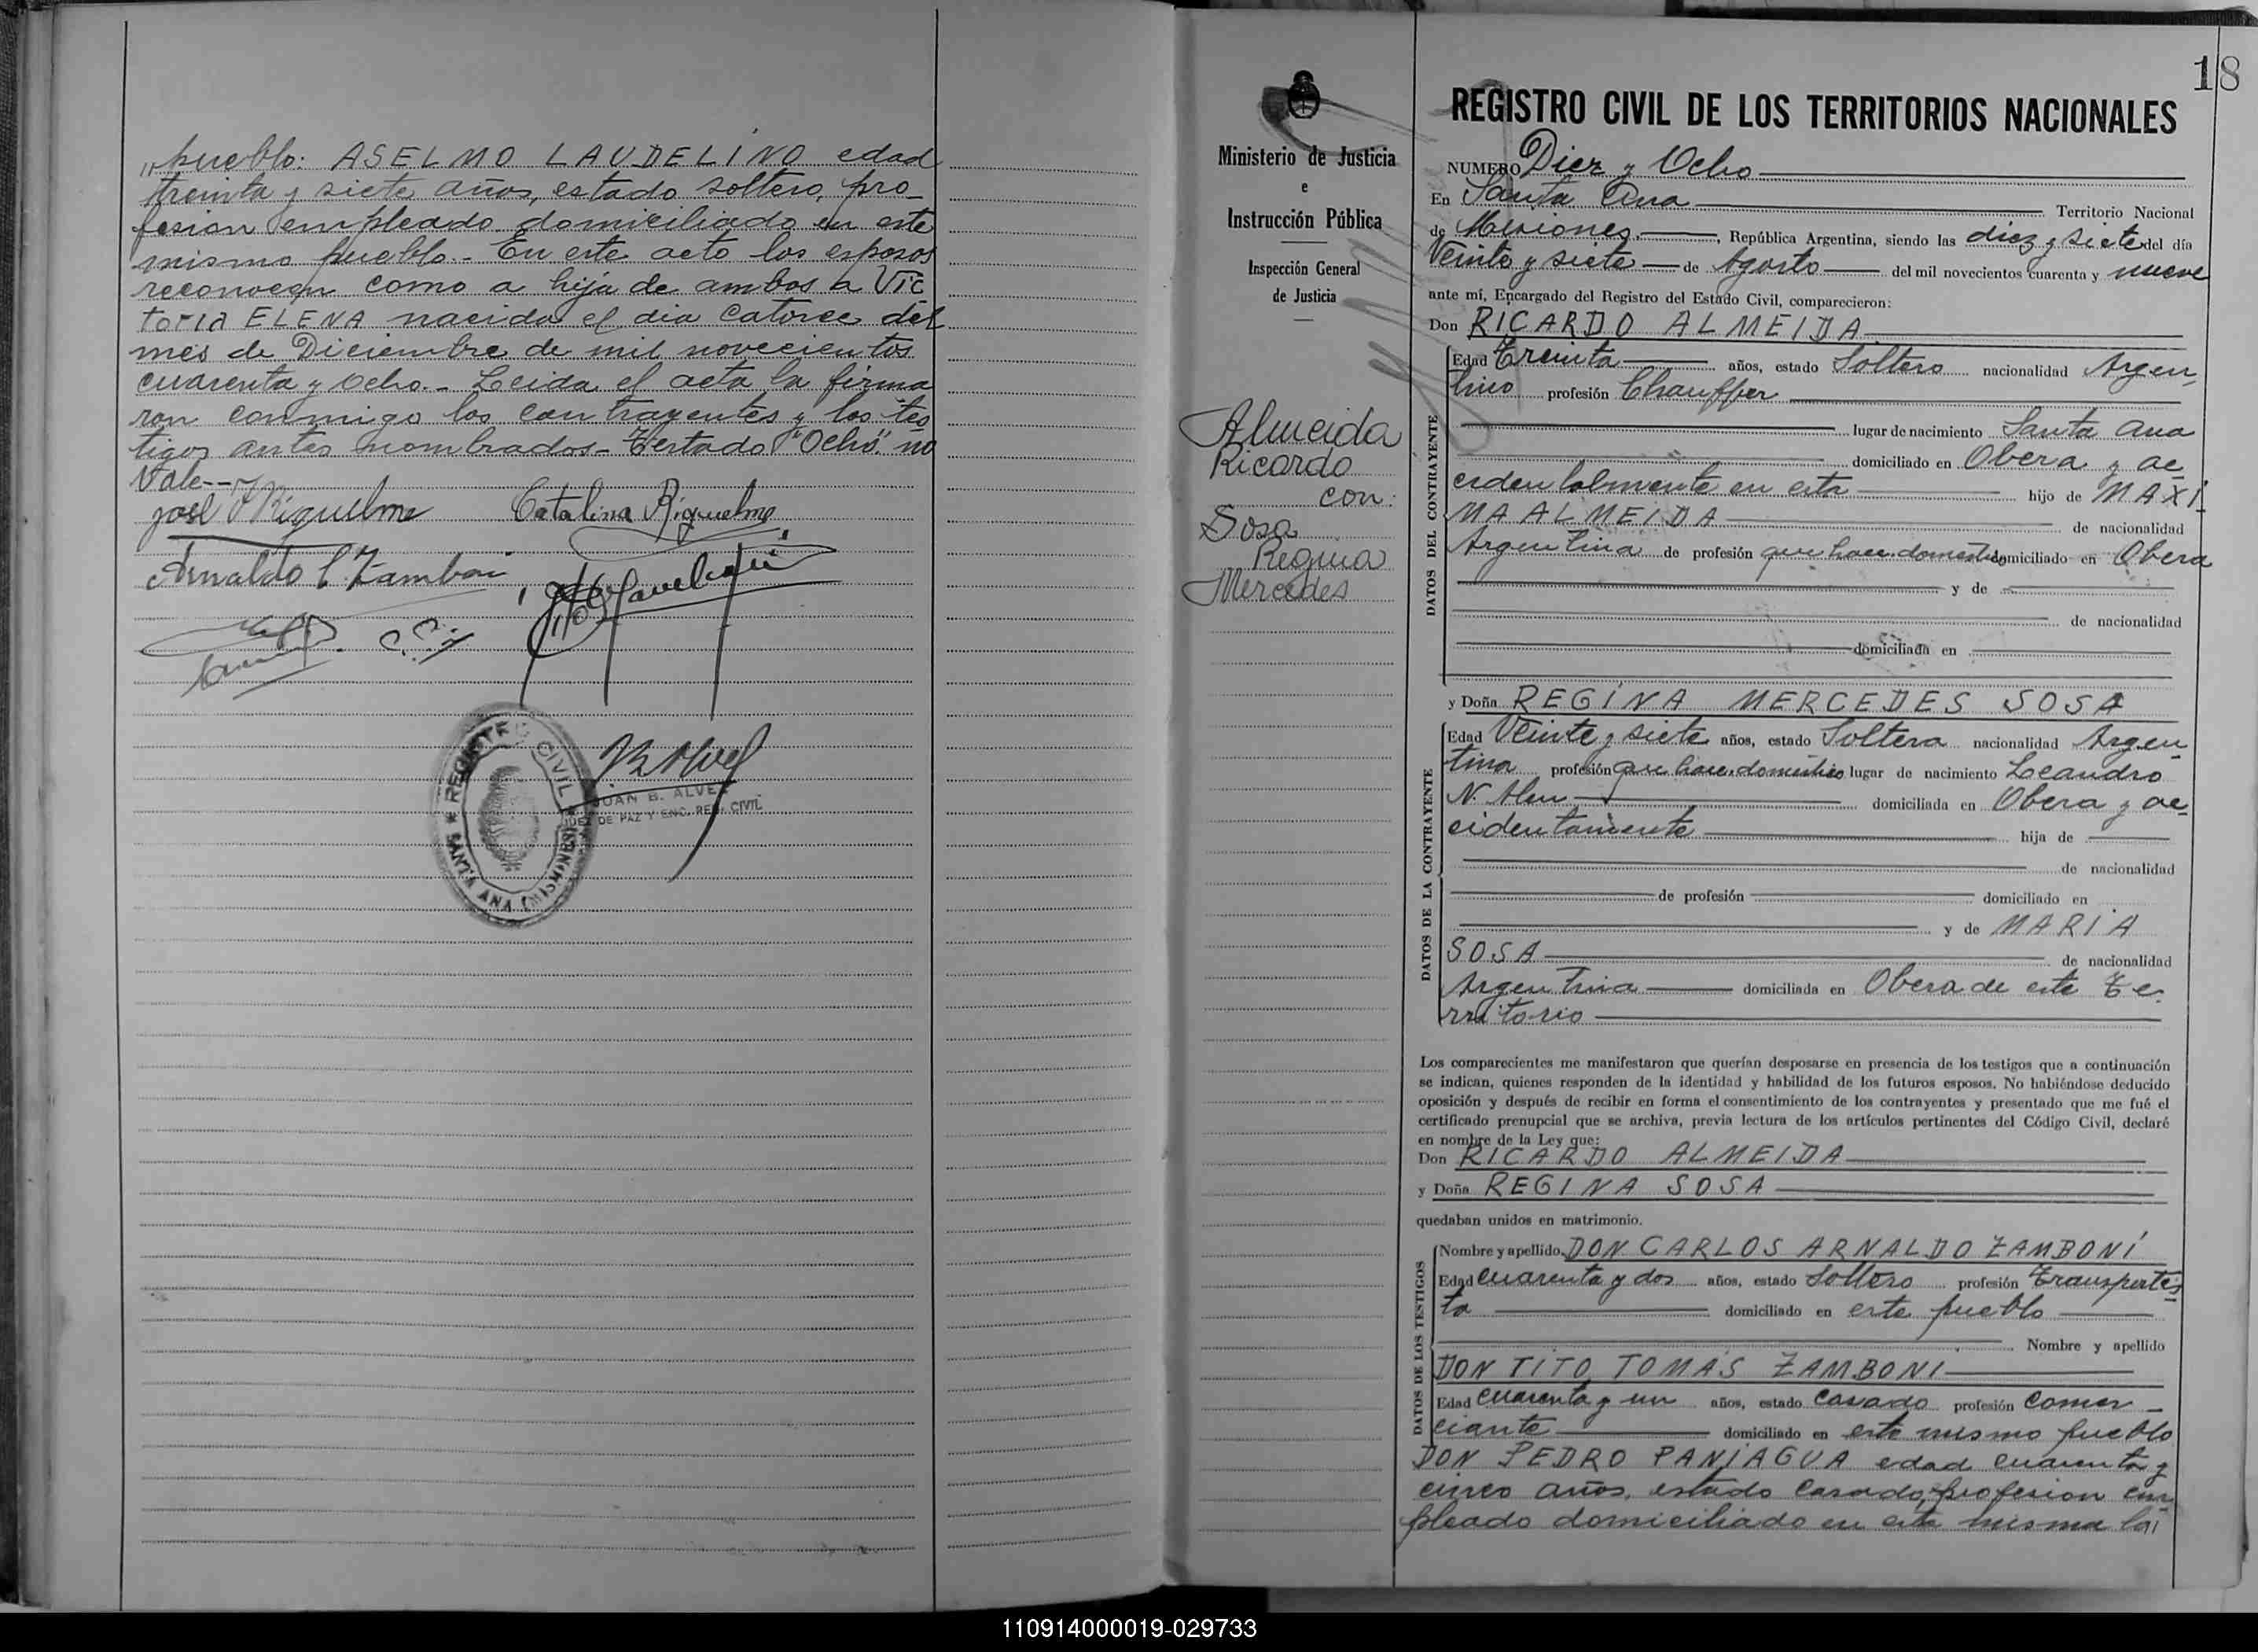 " pueblo: ASELMO LAUDELINO edad
treinta y siete años, estado soltero, pro-
fesion empleado domiciliado en este
mismo pueblo.- En este acto los esposos
reconocen como a hija de ambos a VIC
TORIA ELENA nacida el dia catorce del
mes de Diciembre de mil novecientos
cuarenta y ocho.- Leida el acta la firma
ron conmigo los contrayentes y los tes
tigos antes nombrados- Testado "Ocho". no
Vale--
José Riquelme Catalina Riquelme
Arnaldo C. Zamboni
REGISTRO CIVIL
SANTA ANA (MISIONES)
JUAN B. ALVEZ
JUEZ DE PAZ Y ENC. REG. CIVIL
Ministerio de Justicia
e
Instrucción Pública
Inspección General
de Justicia
Almeida
Ricardo
con:
Sosa
Regina
Mercedes
18
REGISTRO CIVIL DE LOS TERRITORIOS NACIONALES
NUMERO Diez y Ocho
En Santa Ana Territorio Nacional
de Misiones, República Argentina, siendo las diez y siete del día
Veinte y siete de Agosto del mil novecientos cuarenta y nueve
ante mí, Encargado del Registro del Estado Civil, comparecieron:
Don RICARDO ALMEIDA
DATOS DEL CONTRAYENTE
Edad Treinta años, estado Soltero nacionalidad Argen
tino profesión Chauffer
lugar de nacimiento Santa Ana
domiciliado en Obera y ac
cidentalmente en esta hijo de MAXI
MA ALMEIDA de nacionalidad
Argentina de profesión que hace. domestico domiciliado en Obera
y de
de nacionalidad
domiciliada en
y Doña REGINA MERCEDES SOSA
DATOS DE LA CONTRAYENTE
Edad Veinte y siete años, estado Soltera nacionalidad Argen
tina profesión que hace. domestico lugar de nacimiento Leandro
N. Alem domiciliada en Obera y ac
cidentamente hija de
de nacionalidad
de profesión domiciliado en
y de MARIA
SOSA de nacionalidad
Argentina domiciliada en Obera de este Te-
rritorio
Los comparecientes me manifestaron que querían desposarse en presencia de los testigos que a continuación
se indican, quienes responden de la identidad y habilidad de los futuros esposos. No habiéndose deducido
oposición y después de recibir en forma el consentimiento de los contrayentes y presentado que me fué el
certificado prenupcial que se archiva, previa lectura de los artículos pertinentes del Código Civil, declaré
en nombre de la Ley que:
Don RICARDO ALMEIDA
y Doña REGINA SOSA
quedaban unidos en matrimonio.
DATOS DE LOS TESTIGOS
Nombre y apellido DON CARLOS ARNALDO ZAMBONI
Edad cuarenta y dos años, estado Soltero profesión Transportis
ta domiciliado en este pueblo
Nombre y apellido
DON TITO TOMAS ZAMBONI
Edad cuarenta y un años, estado casado profesión comer-
ciante domiciliado en este mismo pueblo
DON PEDRO PANIAGUA edad cuarenta y
cinco años, estado casado, profesion em
pleado domiciliado en esta misma
110914000019-029733